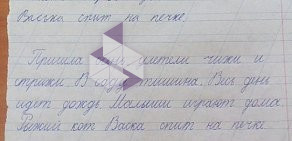 Васька спит на печке.
Пришла улетели чижи и
стрижи. В саду тишина. Весь день
идет дождь. Малыши играют дома
Рыжий кот Васка спит на печке